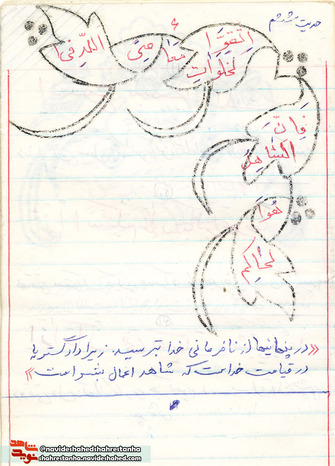 حدیث ششم
اِتَّقُوا مَعاصِیَ اللهِ فِی
الخَلَواتِ
فَاِنَّ
الشّاهِدَ
هُوَ
الحاکِم
«در پنهانیها از نافرمانی خدا بترسید. زیرا دادگستر یا
در قیامت خداست که شاهد اعمال بشر است»
شاهد
نوید
@navideshahedshahrestanha
shahrestanha.navideshahed.com